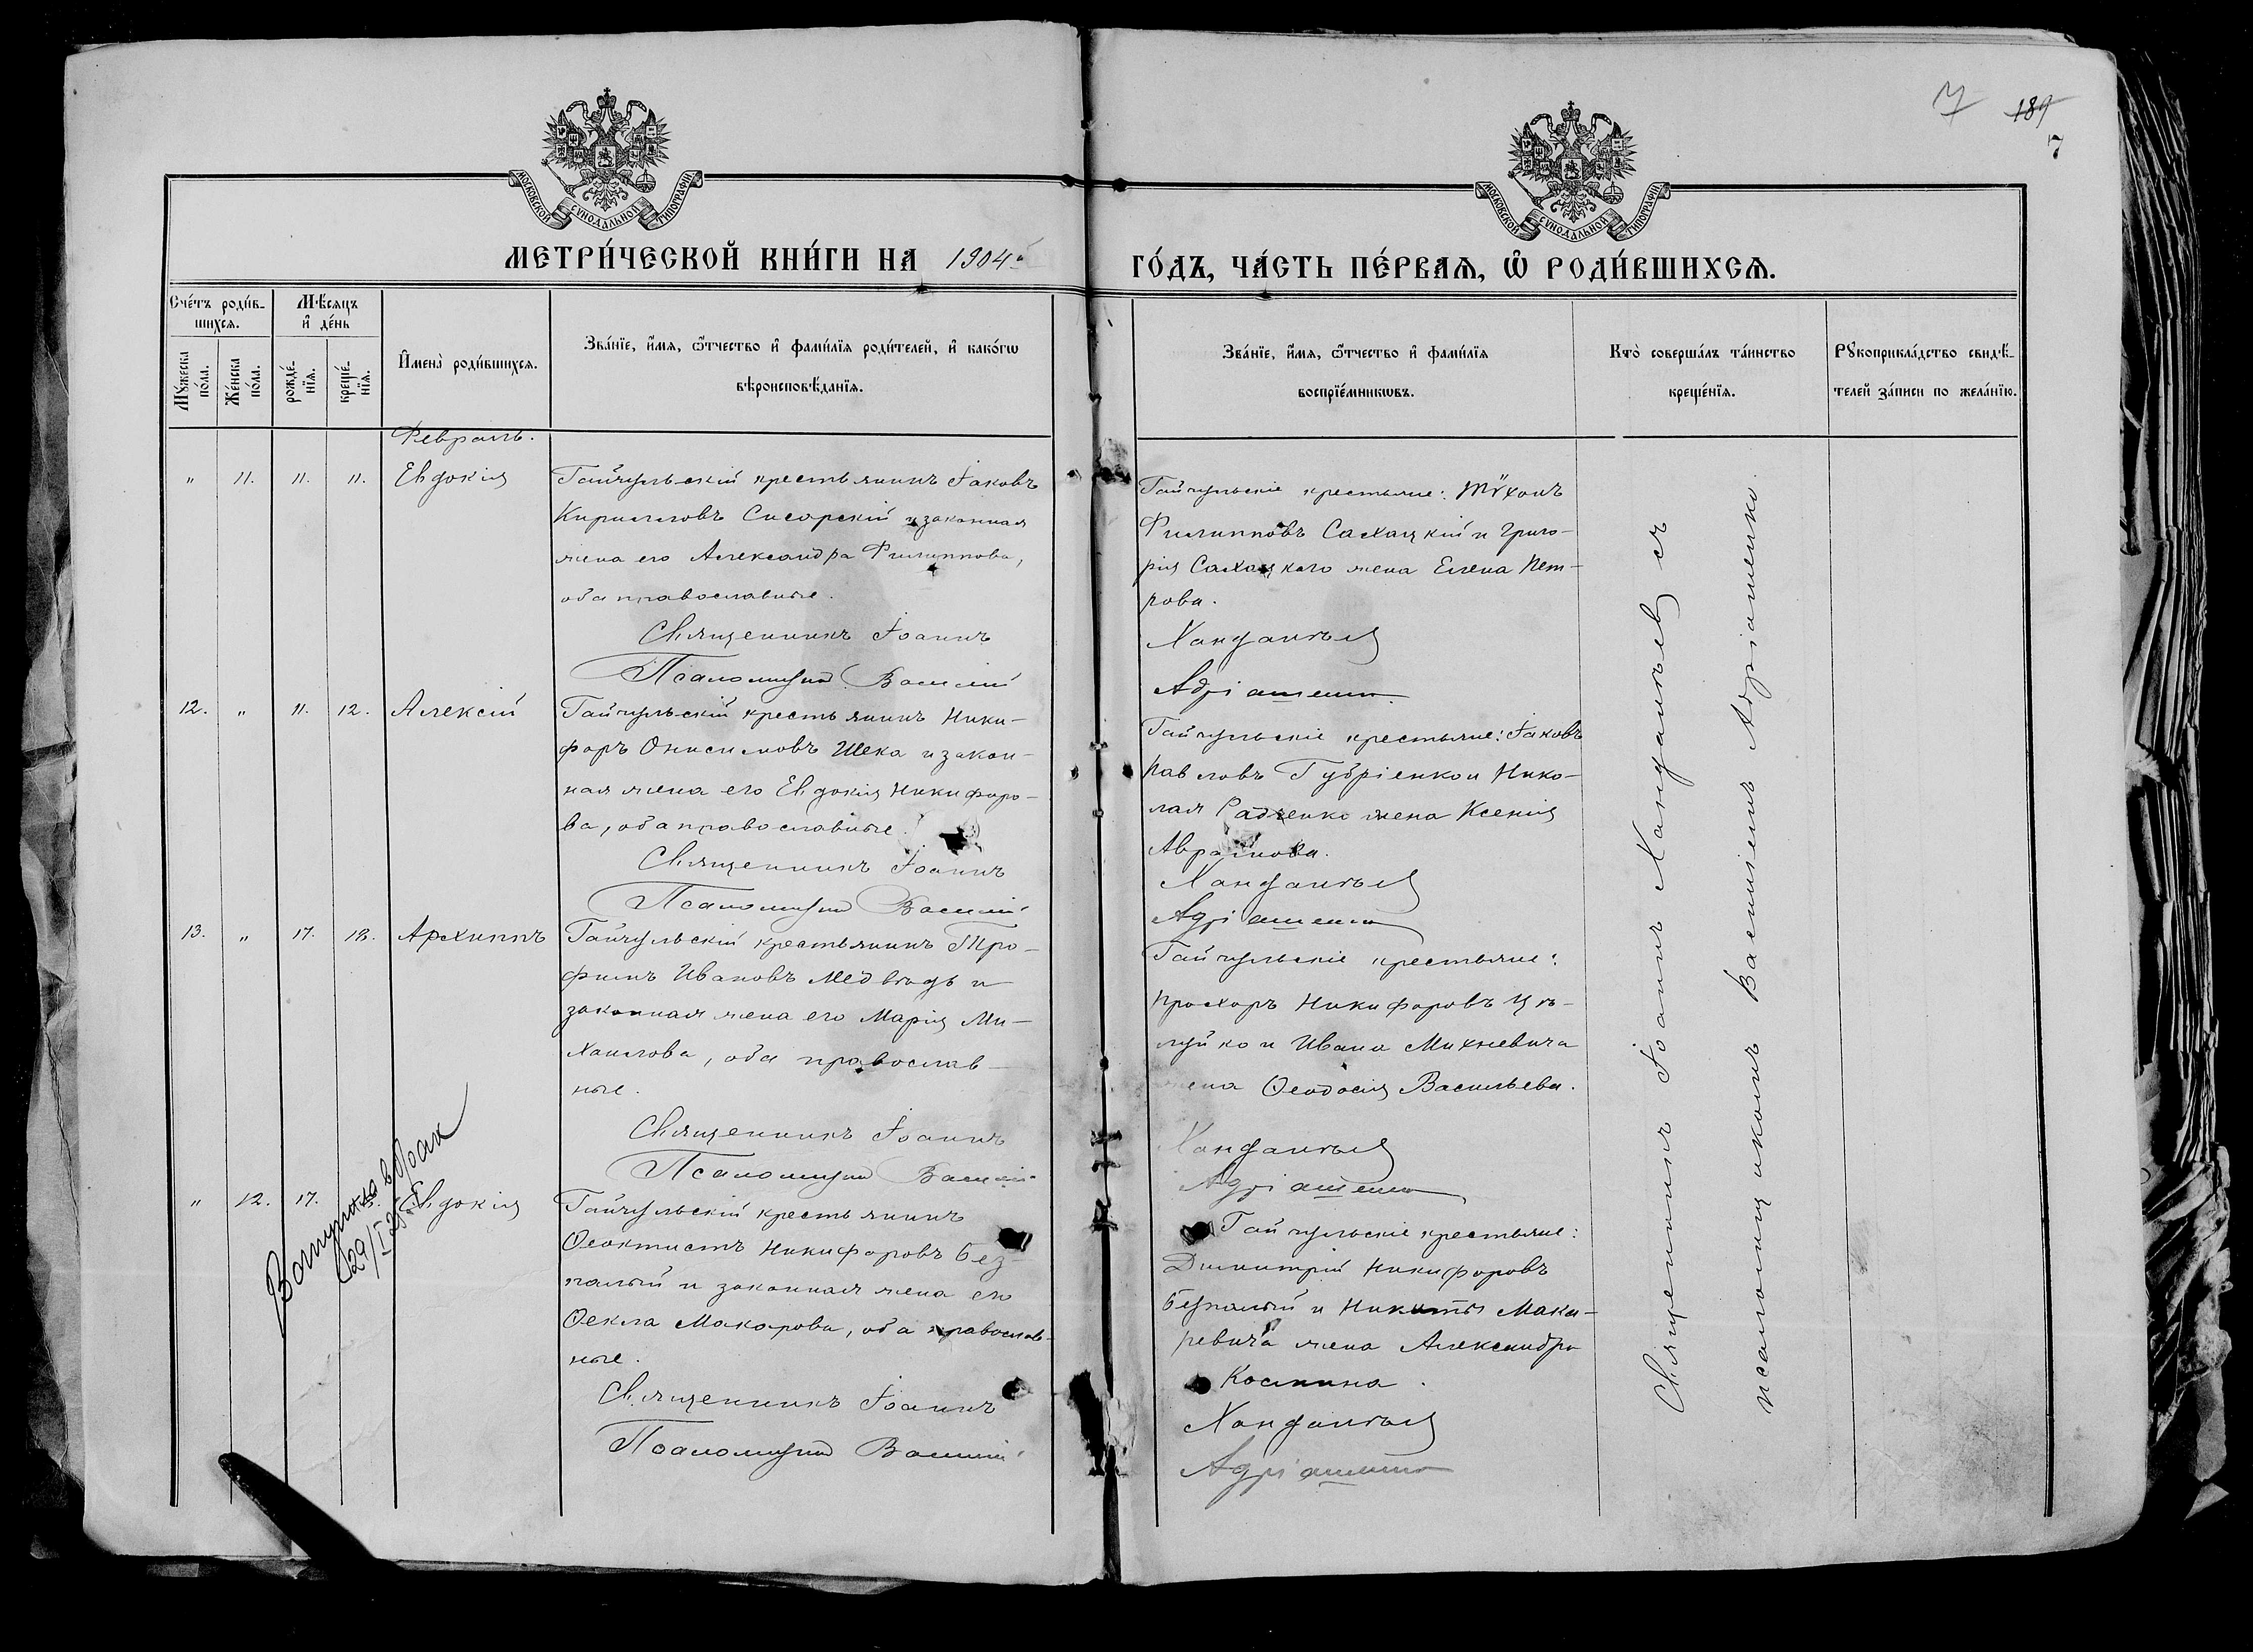 7 189
7
МОСКОВСКОЙ СѴНОДАЛЬНОЙ ТИПОГРАФІИ
МОСКОВСКОЙ СѴНОДАЛЬНОЙ ТИПОГРАФІИ
МЕТРИ́ЧЕСКОЙ КНИ́ГИ НА 1904й
ГО́ДЪ, ЧА́СТЬ ПЕ́РВАѦ, Ѡ҆ РОДИ́ВШИХСѦ.
Сче́тъ роди́в-
шихсѧ.
Мꙋ́жеска
по́ла.
Же́нска
по́ла.
Мѣ́сѧцъ
и҆ де́нь
рожде́-
нїѧ.
креще́-
нїѧ.
И҆мена̀ роди́вшихсѧ.
Зва́нїе, и҆́мѧ, ѻ҆́тчество и҆ фами́лїѧ роди́телей, и҆ како́гѡ
вѣроисповѣ́данїѧ.
Зва́нїе, и҆́мѧ, ѻ҆́тчество и҆ фами́лїѧ
воспрїе́мникѡвъ.
Кто̀ соверша́лъ та́инство
креще́нїѧ.
Рꙋкоприкла́дство свидѣ́-
телей за́писи по жела́нїю.
Февраль.
" 11. 11. 11. Евдокія
Гайчульскій крестьянинъ Іаковъ
Кирилловъ Сигорскій и законная
жена его Александра Филиппова,
оба православные.
Священникъ Іоаннъ
Псаломщикъ Василій
Гайчульскіе крестьяне: Тѵхонъ
Филипповъ Сахацкій и Григо-
рія Сахацкаго жена Елена Пет-
рова.
Хандалѣев
Адріашенко
12. " 11. 12. Алексій
Гайчульскій крестьянинъ Ники-
форъ Онисимовъ Шека и закон-
ная жена его Евдокія Никифоро-
ва, оба православные.
Священникъ Іоаннъ
Псаломщикъ Василій
Гайчульскіе крестьяне: Іаковъ
Павловъ Губріенко и Нико-
лая Радченко жена Ксенія
Авраамова.
Хандалѣев
Адріашенко
13. " 17. 18. Архиппъ
Гайчульскій крестьянинъ Тро-
фимъ Ивановъ Медвѣдь и
законная жена его Марія Ми-
хаилова, оба православ-
ные.
Священникъ Іоаннъ
Псаломщикъ Василій
Гайчульскіе крестьяне:
Прохоръ Никифоровъ Цѣ-
луйко и Ивана Михневича
жена Ѳеодосія Васильева.
Хандалѣев
Адріашенко
" 12. 17. Евдокія
Гайчульскій крестьянинъ
Ѳеоктистъ Никифоровъ Без-
палый и законная жена его
Ѳекла Макарова, оба православ-
ные.
Священникъ Іоаннъ
Псаломщикъ Василій
Гайчульскіе крестьяне:
Димитрій Никифоровъ
Безпалый и Никиты Мака-
ревича жена Александра
Космина.
Хандалѣев
Адріашенко
в брак
Священникъ Іоаннъ Хандалѣев съ
псаломщикомъ Василіемъ Адріашенко.